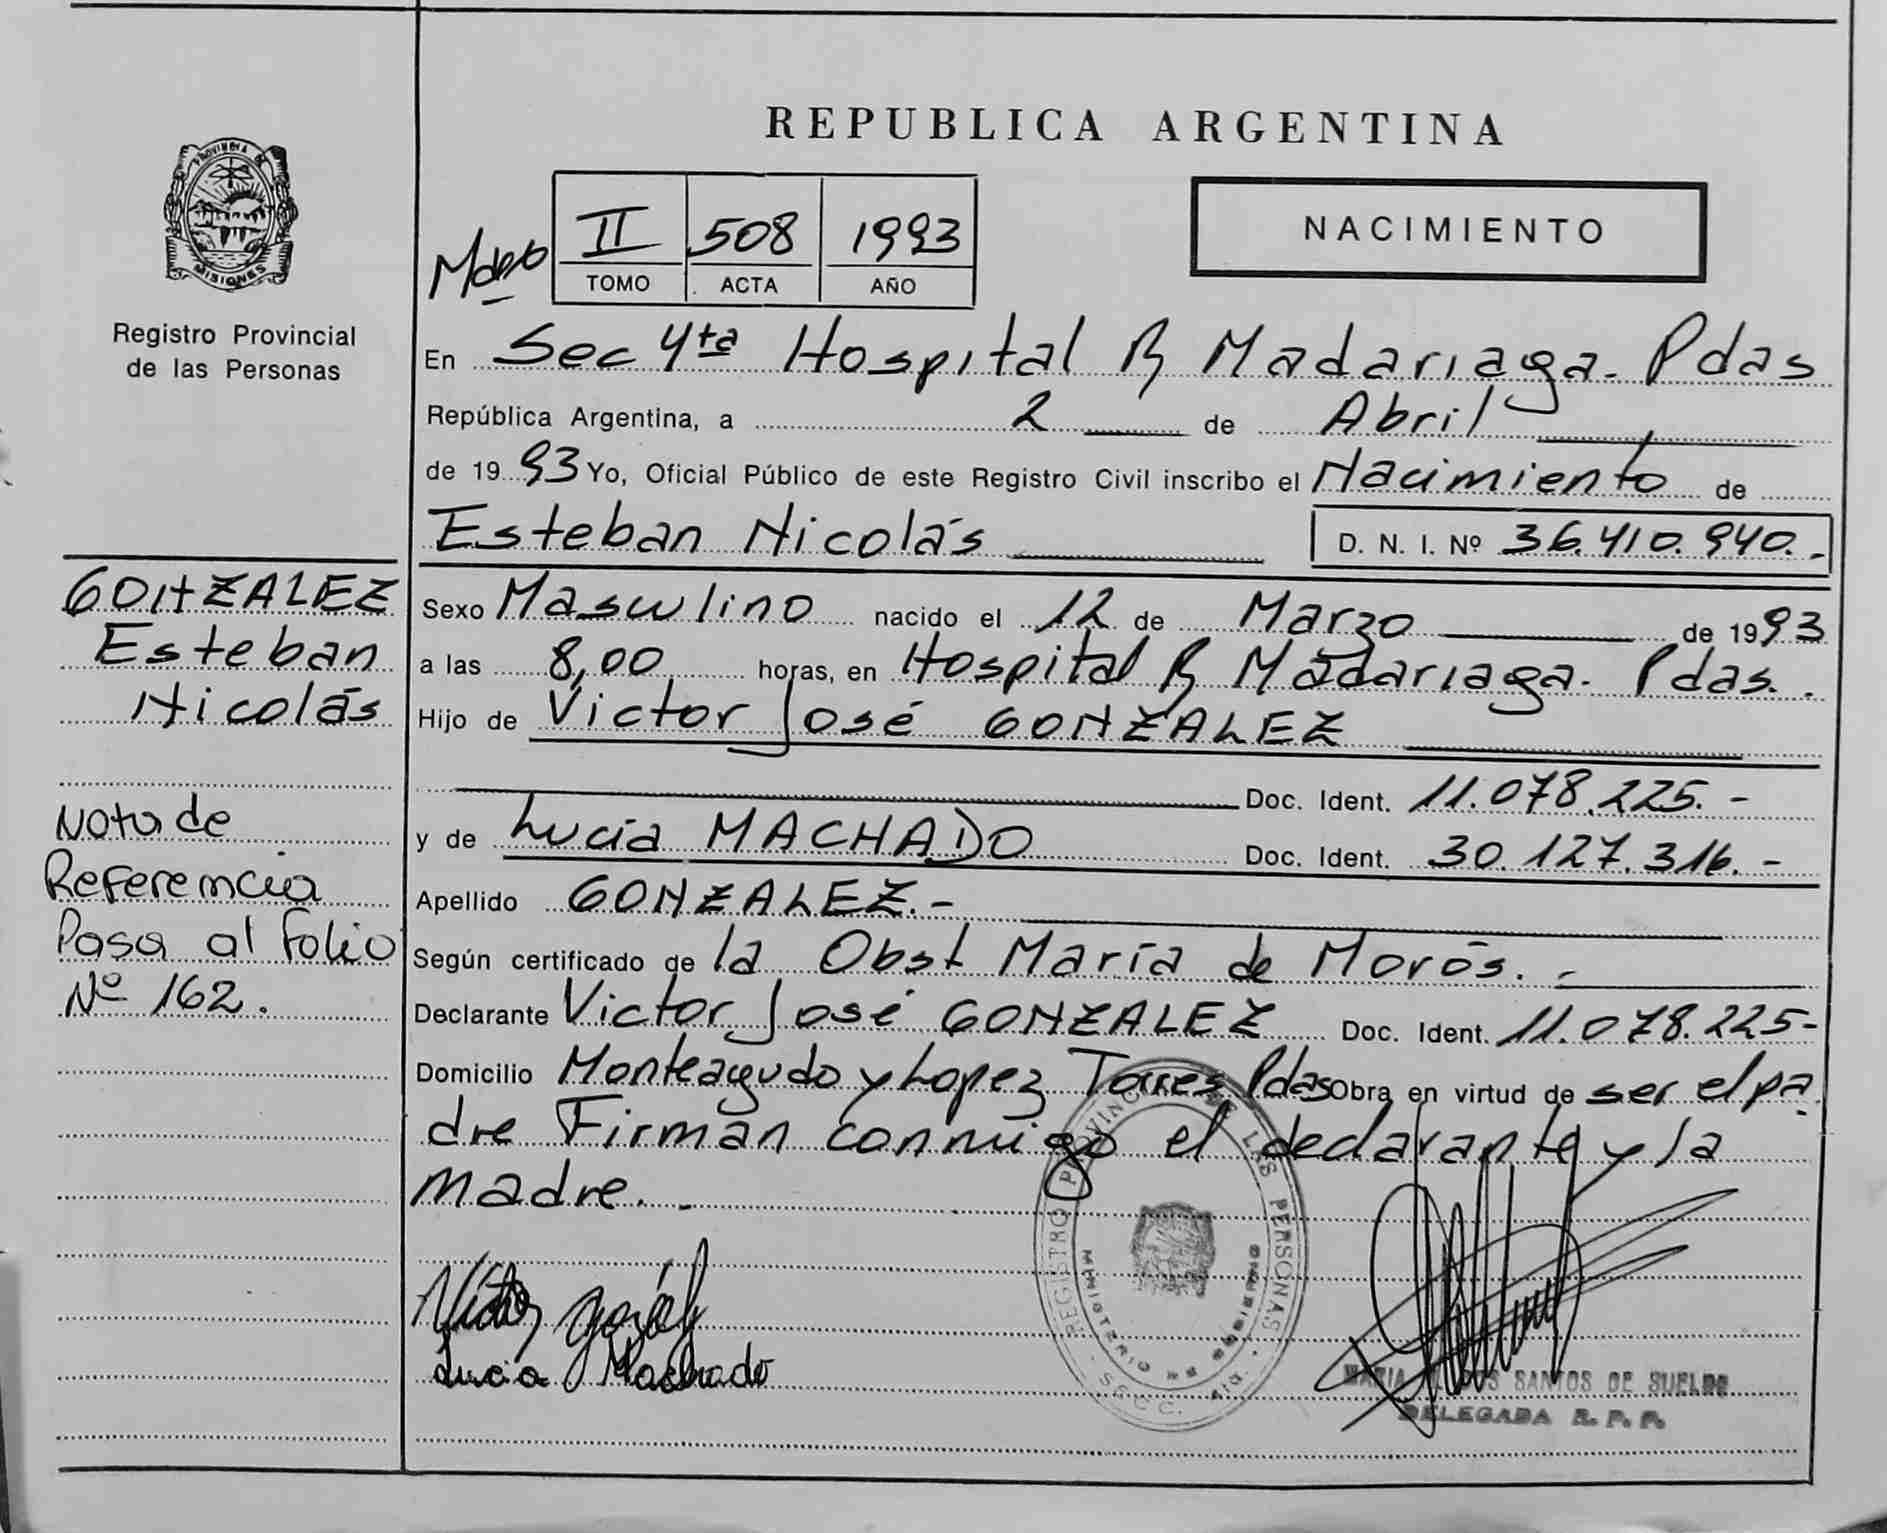 PROVINCIA DE
MISIONES
Registro Provincial
de las Personas
REPUBLICA ARGENTINA
II 508 1993
TOMO ACTA AÑO
NACIMIENTO
En Sec 4ta Hospital R Madariaga. Pdas
República Argentina, a 2 de Abril
de 1993 Yo, Oficial Público de este Registro Civil inscribo el Nacimiento de
Esteban Nicolás D. N. I. Nº 36.410.940.-
GONZALEZ
Esteban
Nicolás
Sexo Masculino nacido el 12 de Marzo de 1993
a las 8,00 horas, en Hospital R Madariaga. Pdas.
Hijo de Victor José GONZALEZ
Doc. Ident. 11.078.225.-
y de Lucia MACHADO Doc. Ident. 30.127.316.-
Apellido GONZALEZ.-
Según certificado de la Obst María de Morós.-
Declarante Victor José GONZALEZ Doc. Ident. 11.078.225-
Domicilio Monteagudo y Lopez Torres Pdas Obra en virtud de ser el pa
dre Firman conmigo el declarante y la
madre.-
Nota de
Referencia
Pasa al folio
Nº 162.
Victor
Lucia Machado
REGISTRO PROVINCIAL DE LAS PERSONAS
MINISTERIO DE GOBIERNO
SECC. 4ta.
MARIA SANTOS DE SUELDO
DELEGADA R. P. P.